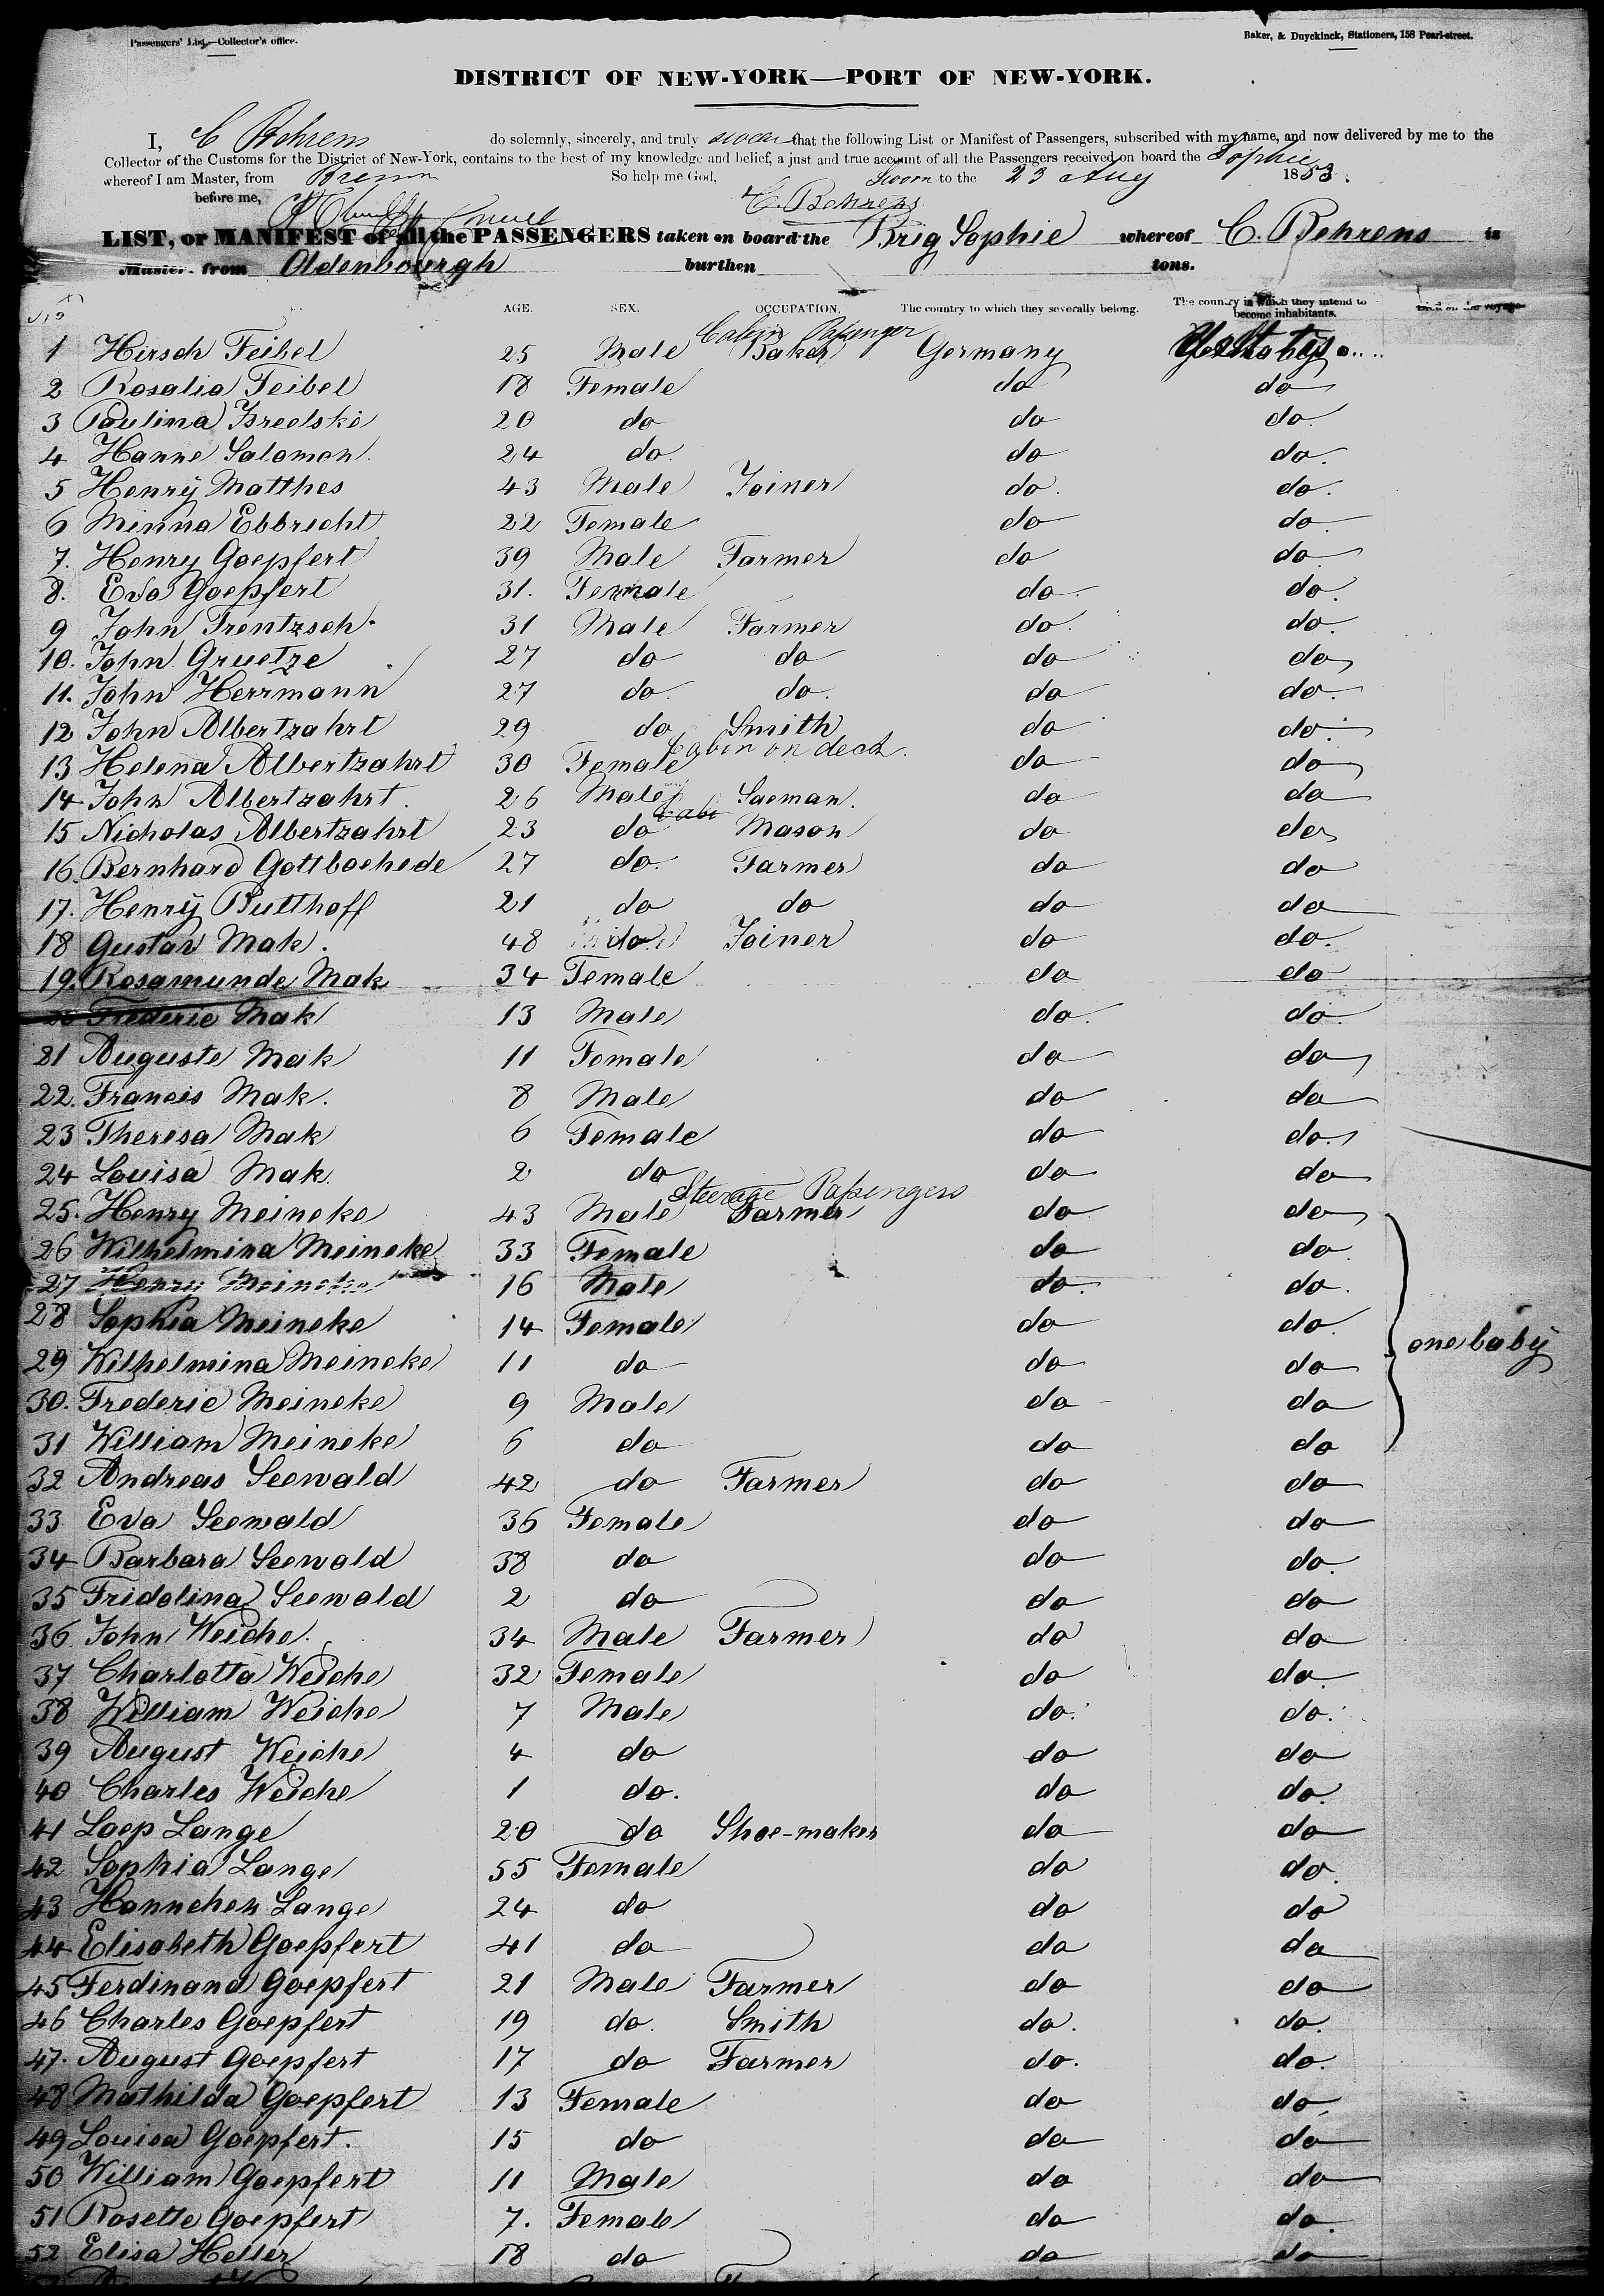 Passengers' List.—Collector's office.
Baker, & Duyckinck, Stationers, 158 Pearl-street.
DISTRICT OF NEW-YORK—PORT OF NEW-YORK.
I, C Behrens do solemnly, sincerely, and truly swear that the following List or Manifest of Passengers, subscribed with my name, and now delivered by me to the
Collector of the Customs for the District of New-York, contains to the best of my knowledge and belief, a just and true account of all the Passengers received on board the Sophie
whereof I am Master, from Bremen So help me God, Sworn to the 23 Aug 1853.
before me, C. Behrens
LIST, or MANIFEST of all the PASSENGERS taken on board the Brig Sophie whereof C. Behrens is
Master from Oldenbourgh burthen tons.
No AGE. SEX. OCCUPATION. The country to which they severally belong. The country in which they intend to become inhabitants. Died on the voyage
Cabin Passenger
1 Hirsch Feibel 25 Male Baker Germany
2 Rosalia Feibel 18 Female do do
3 Paulina Isredski 20 do do do
4 Hanne Salomon 24 do. do do.
5 Henry Matthes 43 Male Joiner do. do.
6 Minna Ebbrecht 22 Female do do.
7. Henry Goepfert 39 Male Farmer do do
8. Eva Goepfert 31. Female do. do.
9 John Trentzsch. 31 Male Farmer do. do.
10. John Gruetze 27 do do do do
11. John Herrmann 27 do. do. do do.
12 John Albertzahrt 29 do Smith do do.
Cabin on deck
13 Helena Albertzahrt 30 Female do do
14 John Albertzahrt. 26 Male Saeman. do do
Cabi
15 Nicholas Albertzahrt 23 do Mason do do
16. Bernhard Gottboehede 27 do. Farmer do do
17. Henry Butthoff 21 do do do do
18 Gustav Mak. 48 do. Joiner do do.
19. Rosamunde Mak 34 Female do do
20 Frederic Mak 13 Male do. do.
21 Auguste Mak 11 Female do do
22. Francis Mak. 8 Male do do
23 Theresa Mak 6 Female do do.
24 Louisa Mak. 2 do do do
Steerage Passengers
25. Henry Meineke 43 Male Farmer do do
26 Wilhelmina Meineke 33 Female do do.
27 Henry Meineke 16 Male do. do.
28 Sophia Meineke 14 Female do do.
one baby
29 Wilhelmina Meineke 11 do do do
30. Frederic Meineke 9 Male do do
31 William Meineke 6 do do do
32 Andreas Seewald 42 do Farmer do do
33 Eva Seewald 36 Female do do
34 Barbara Seewald 38 do do do.
35 Fridolina Seewald 2 do do do
36 John Weiche. 34 Male Farmer do do
37 Charlotta Weiche 32 Female do do.
38 William Weiche 7 Male do. do.
39 August Weiche 4 do do do
40 Charles Weiche 1 do. do do.
41 Loep Lange 20 do Shoe-maker do do
42 Sophia Lange 55 Female do do.
43 Hannchen Lange 24 do do do
44 Elisabeth Goepfert 41 do do do
45 Ferdinand Goepfert 21 Male Farmer do do
46 Charles Goepfert 19 do. Smith do. do.
47. August Goepfert 17 do Farmer do. do.
48 Mathilda Goepfert 13 Female do do.
49 Louisa Goepfert. 15 do do do
50 William Goepfert 11 Male do do
51 Rosette Goepfert 7. Female do do.
52 Elisa Heller 18 do do do